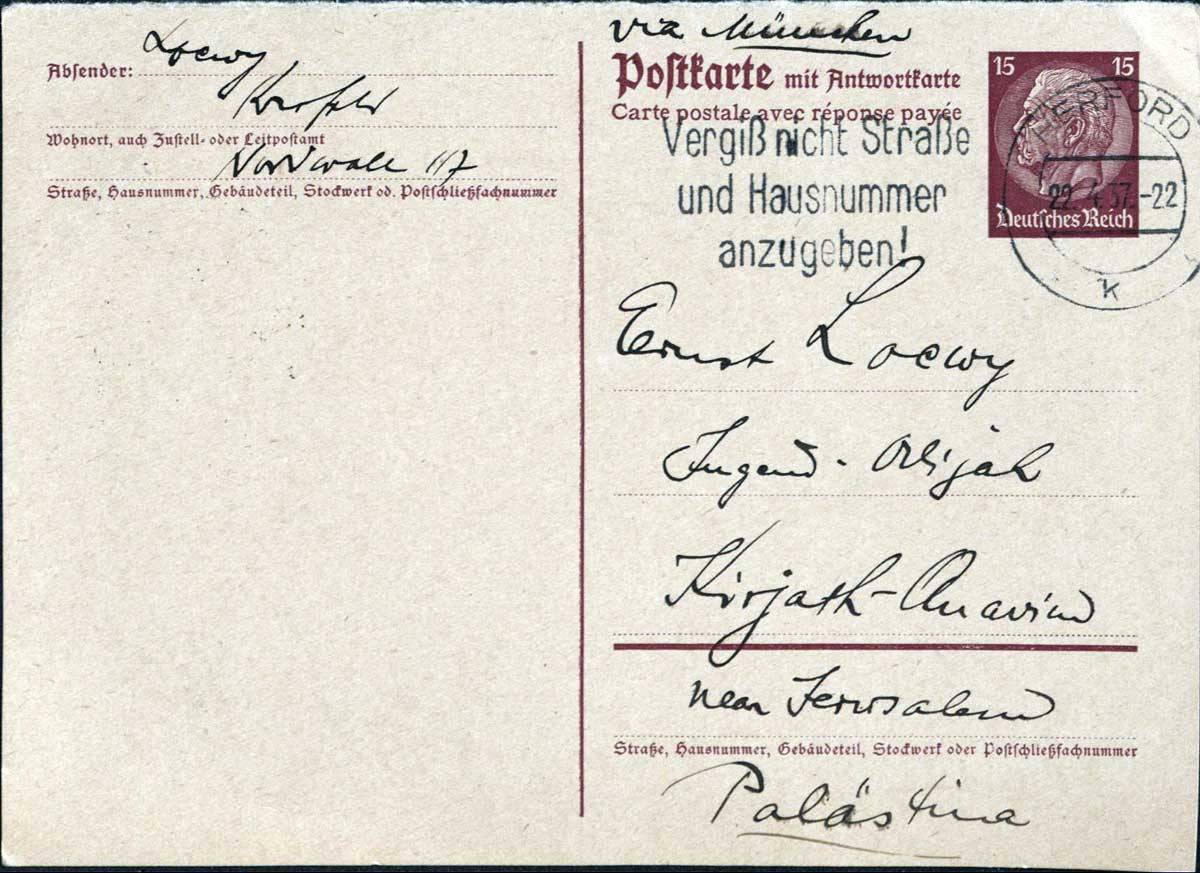 Loewy
Absender:
Krefeld
Wohnort, auch Zustell- oder Leitpostamt
Nordwall 117
Straße, Hausnummer, Gebäudeteil, Stockwerk od. Postschließfachnummer
via München
Postkarte mit Antwortkarte
Carte postale avec réponse payée
15 15
Deutsches Reich
HERFORD
22.4.37.-22
k
Vergiß nicht Straße
und Hausnummer
anzugeben!
Ernst Loewy
Jugend-Alijah
Kirjath-Anavim
near Jerusalem
Straße, Hausnummer, Gebäudeteil, Stockwerk oder Postschließfachnummer
Palästina